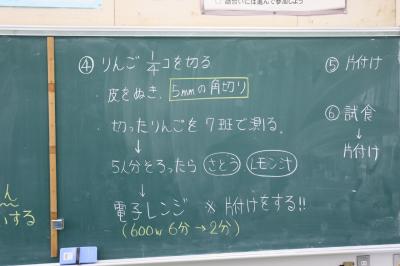 ④ りんご 1/4コを切る
・皮をぬき、5mmの角切り
・切ったりんごを7班で測る。
↓
5人分そろったら さとう レモン汁
↓
電子レンジ ※片付けをする!!
(600w 6分→2分)
⑤ 片付け
⑥ 試食
↓
片付け